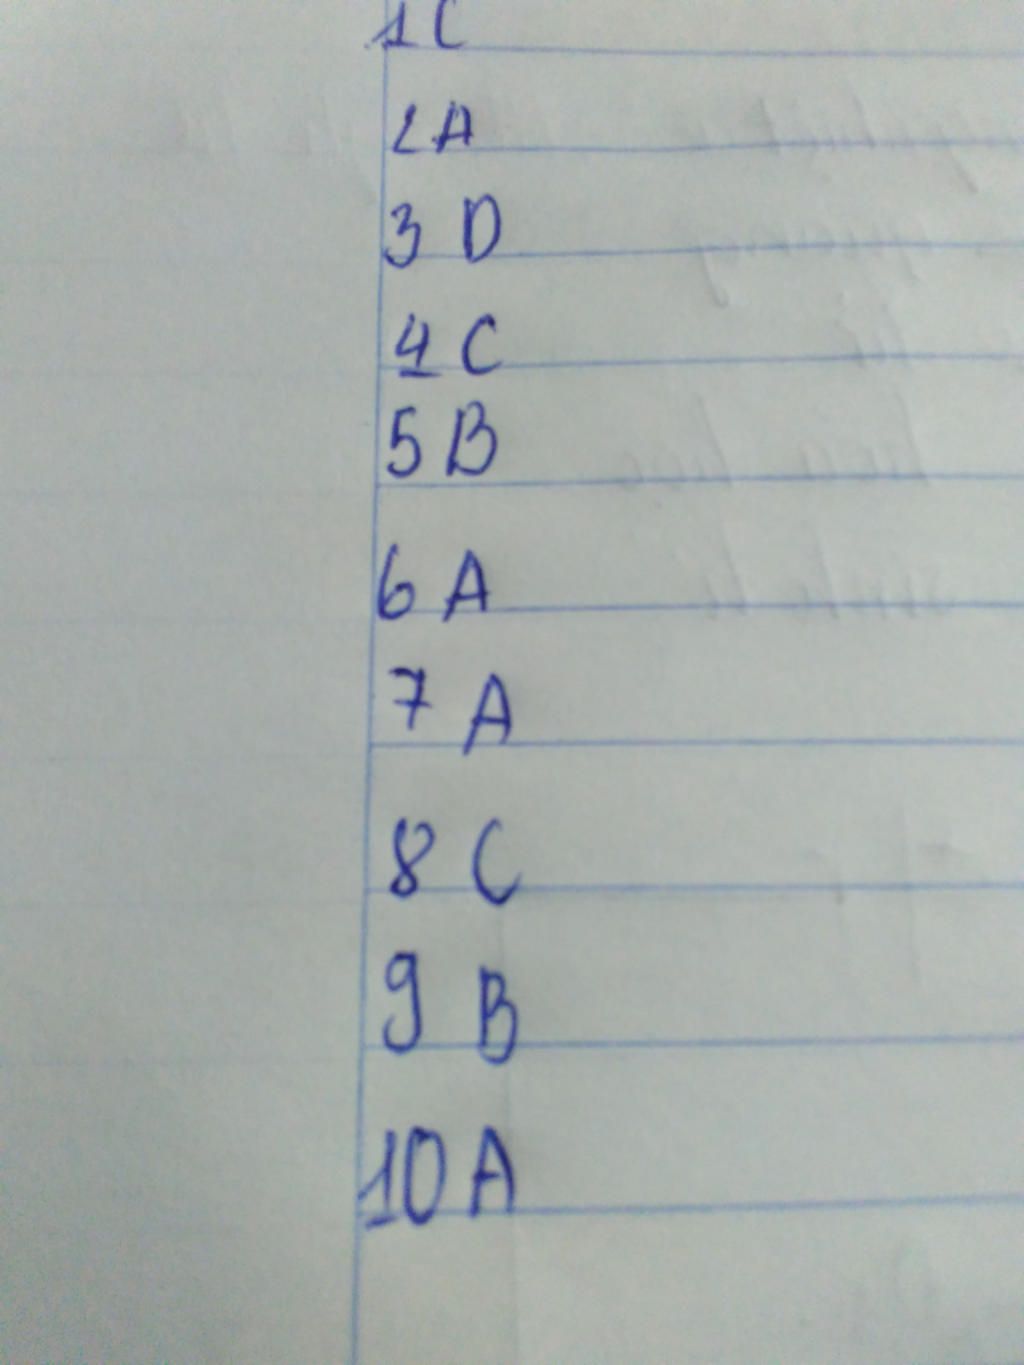 1 C
2 A
3 D
4 C
5 B
6 A
7 A
8 C
9 B
10 A